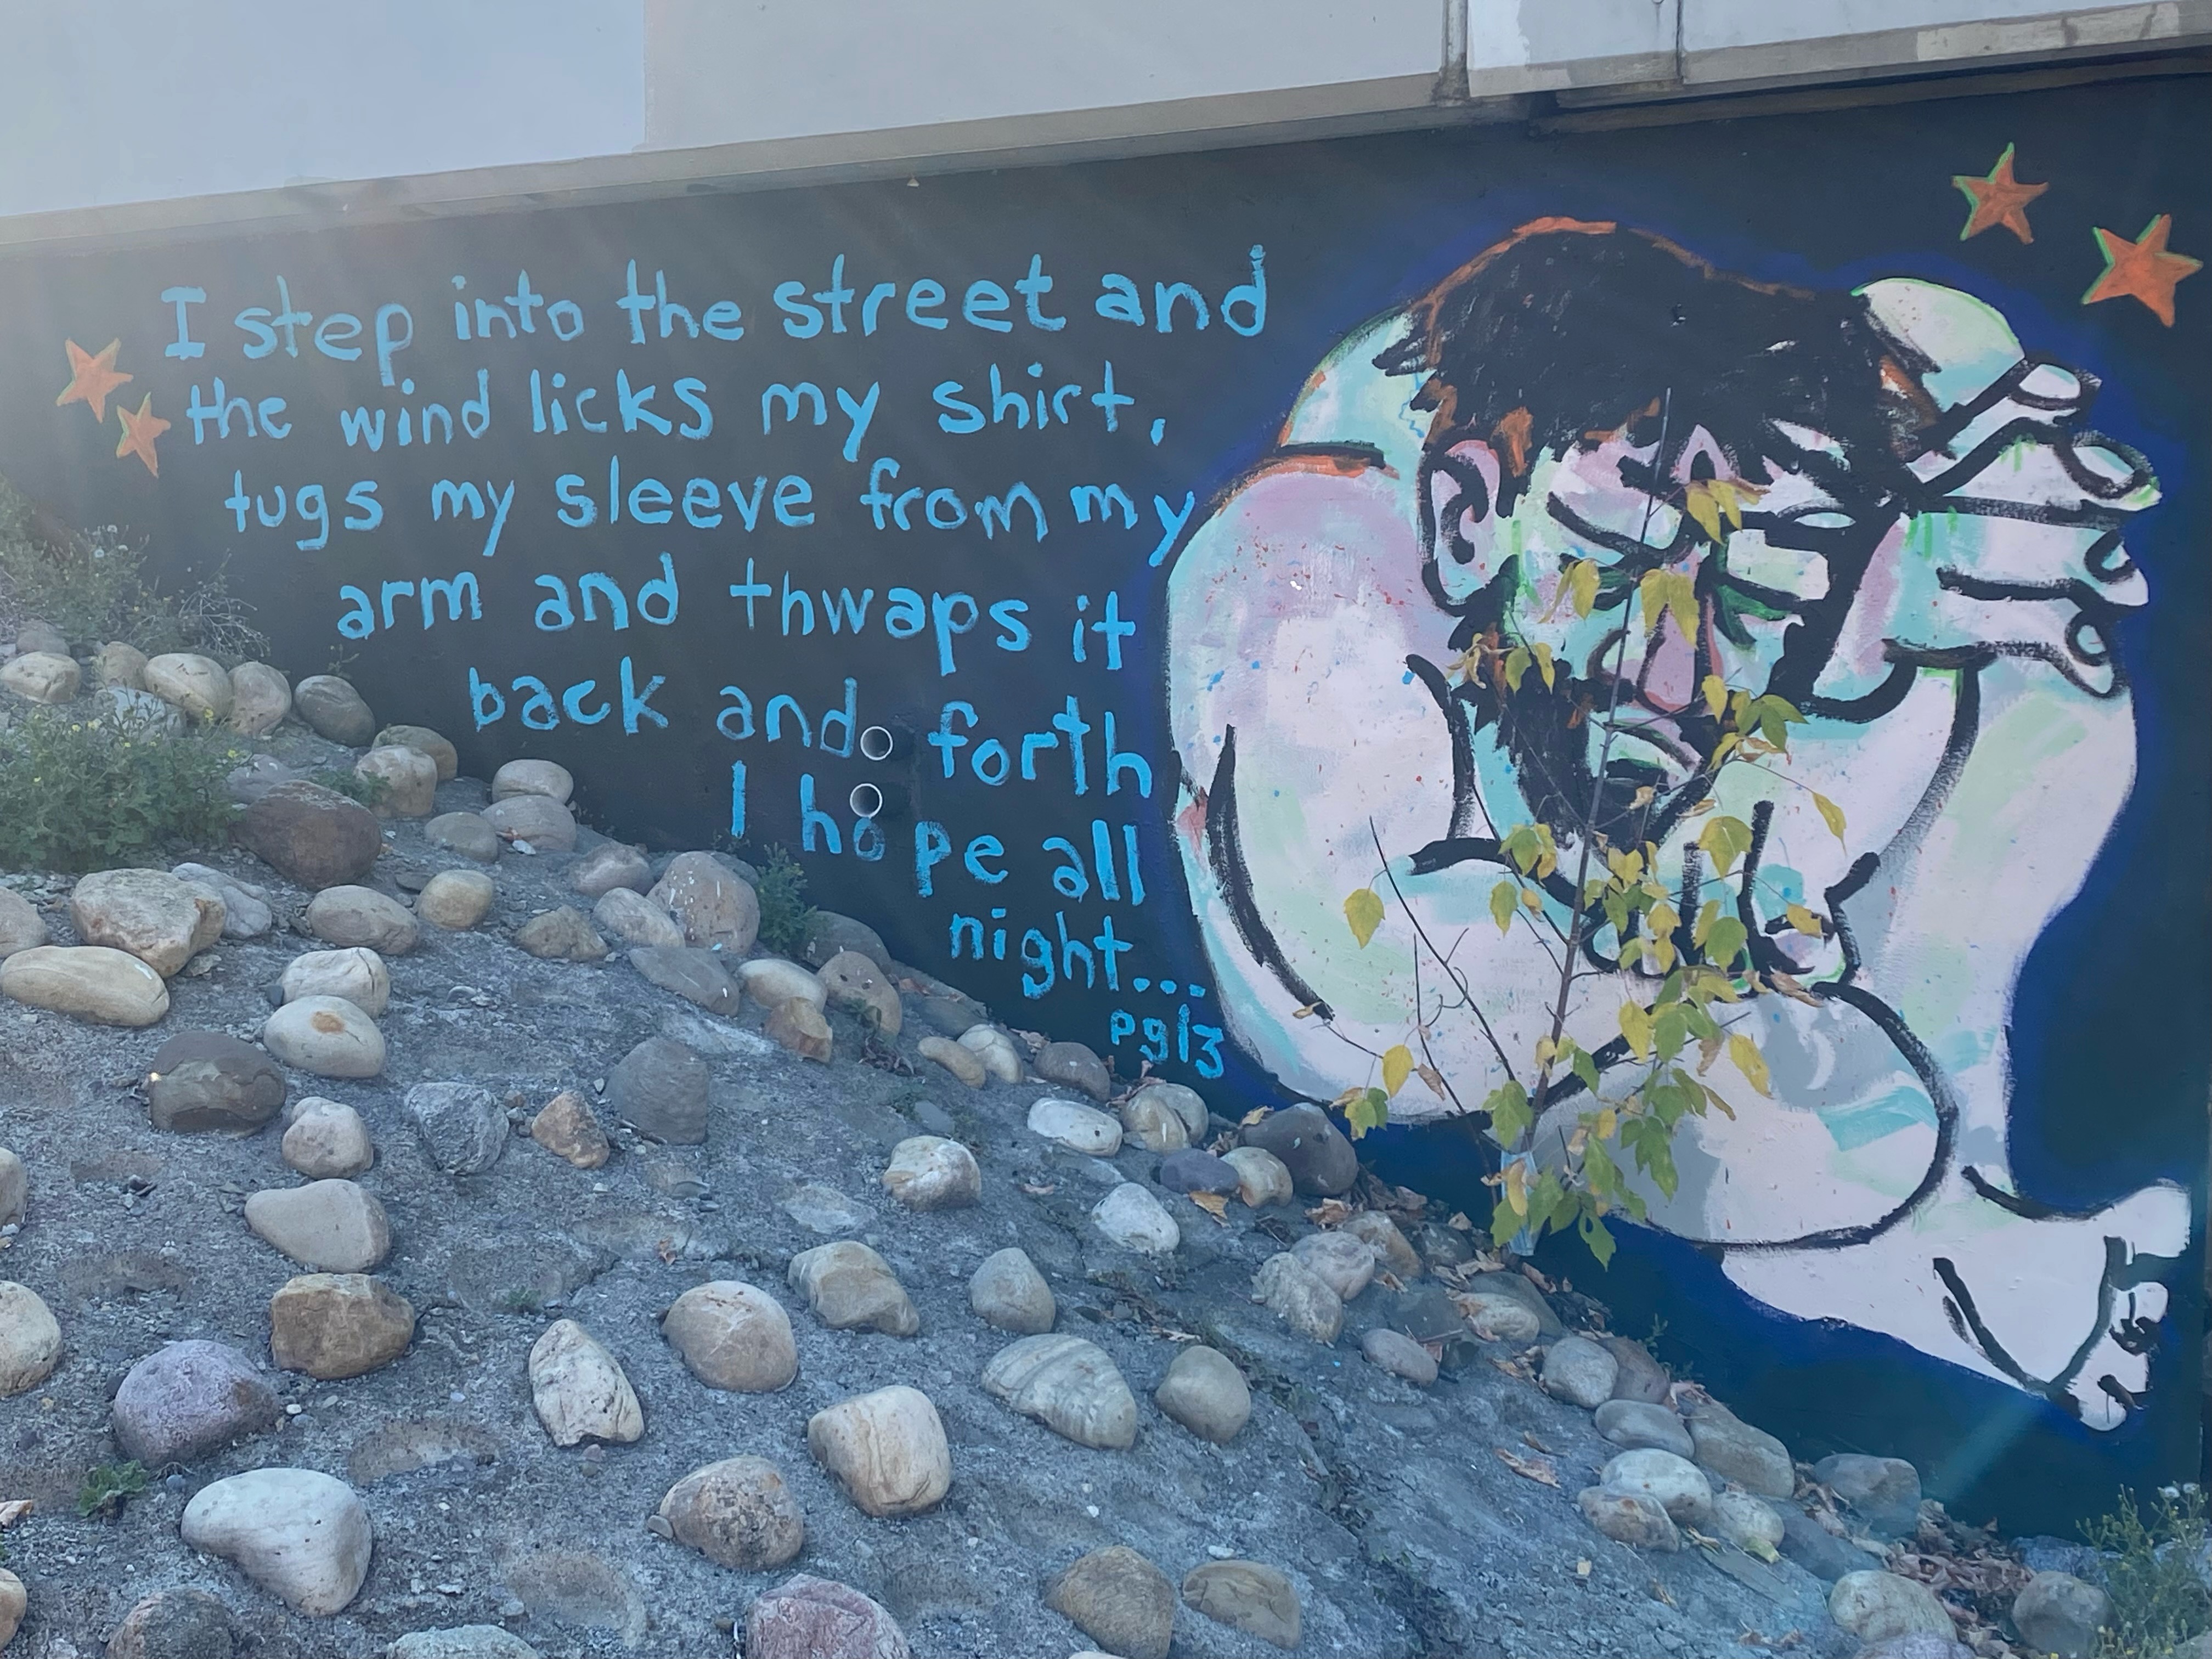 I step into the street and
the wind licks my shirt,
tugs my sleeve from my
arm and thwaps it
back and forth
I hope all
night...
pg13